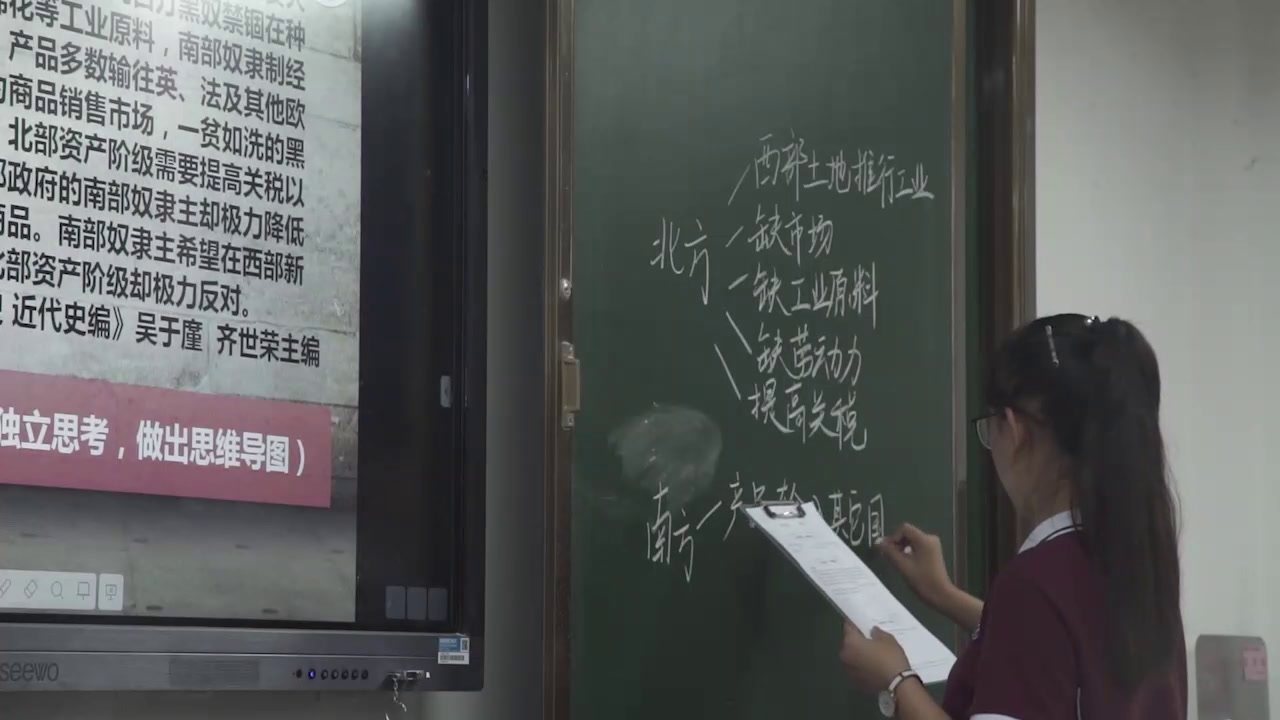 黑奴禁锢在种
棉花等工业原料，南部奴隶制经
产品多数输往英、法及其他欧
的商品销售市场，一贫如洗的黑
北部资产阶级需要提高关税以
政府的南部奴隶主却极力降低
商品。南部奴隶主希望在西部新
北部资产阶级却极力反对。
近代史编》吴于廑 齐世荣主编
独立思考，做出思维导图）
seewo
西部土地推行工业
北方
缺市场
缺工业原料
缺劳动力
提高关税
南方
产品输 其它国